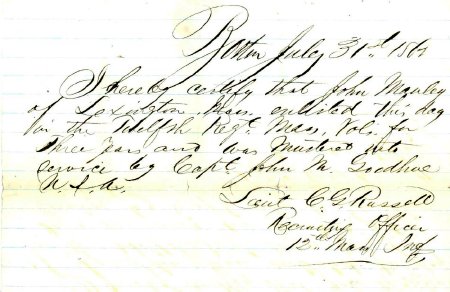 Boston July 31st 186
I hereby certify that John Manley
of Lexington Mass. enlisted this day
in the Twelfth Regt. Mass. Vols. for
three years and was mustered into
service by Capt. John M. Goodhue
U.S.A.
Lieut C. G. Russell
Recruiting Officer
12th Mass Inf